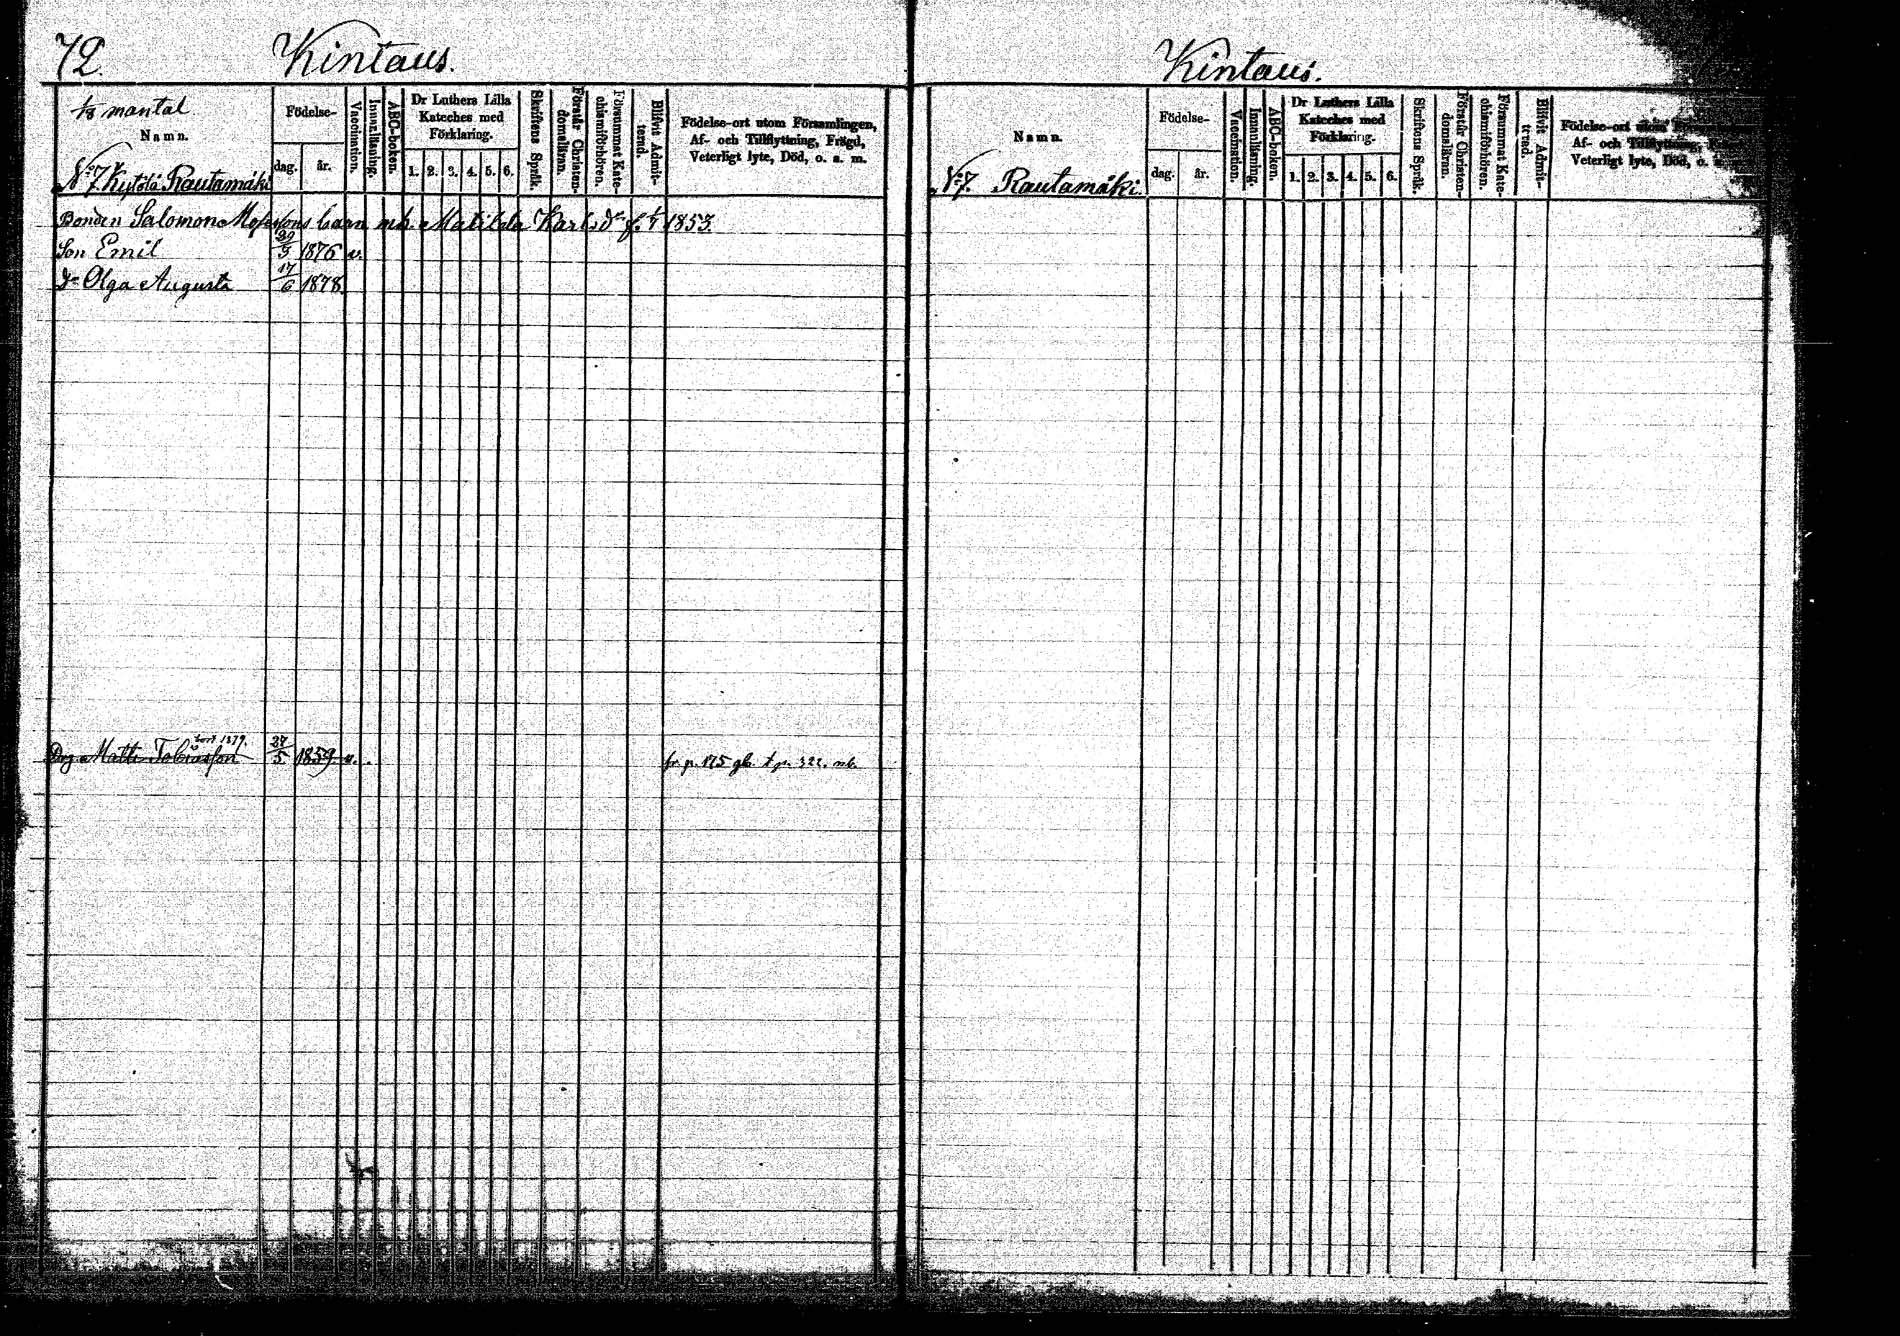 72. Kintaus.
1/8 mantal
Namn.
Födelse-
dag. år.
Vaccination.
Innanläsning.
ABC-boken.
Dr Luthers Lilla
Kateches med
Förklaring.
1. 2. 3. 4. 5. 6.
Skriftens Språk.
Förstår Christen-
domsläran.
Försummat Kate-
chismiförhören.
Blifvit Admit-
terad.
Födelse-ort utom Församlingen,
Af- och Tillflyttning, Frägd,
Veterligt lyte, Död, o. s. m.
No 7 Kytölä Rautamäki
Bonden Salomon Mosessons barn mh. Matilda Karlsdr f. 1853.
Son Emil 29/9 1876 v.
dr Olga Augusta 17/6 1878.
bort 1879.
Drg Matts Tobiasson 27/5 1859 v.
fr. p. 175 gb. t p. 322. nb.
Kintaus.
Namn.
Födelse-
dag. år.
Vaccination.
Innanläsning.
ABC-boken.
Dr Luthers Lilla
Kateches med
Förklaring.
1. 2. 3. 4. 5. 6.
Skriftens Språk.
Förstår Christen-
domsläran.
Försummat Kate-
chismiförhören.
Blifvit Admit-
terad.
Födelse-ort utom
Af- och Tillflyttning,
Veterligt lyte, Död, o.
No 7. Rautamäki.